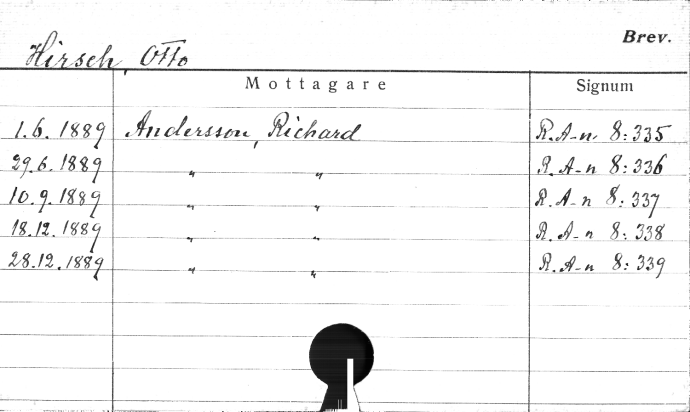 Brev.
Hirsch, Otto
Mottagare Signum
1.6.1889 Andersson, Richard R.A-n 8:335
29.6.1889 " " R.A-n 8:336
10.9.1889 " " R.A-n 8:337
18.12.1889 " " R.A-n 8:338
28.12.1889 " " R.A-n 8:339